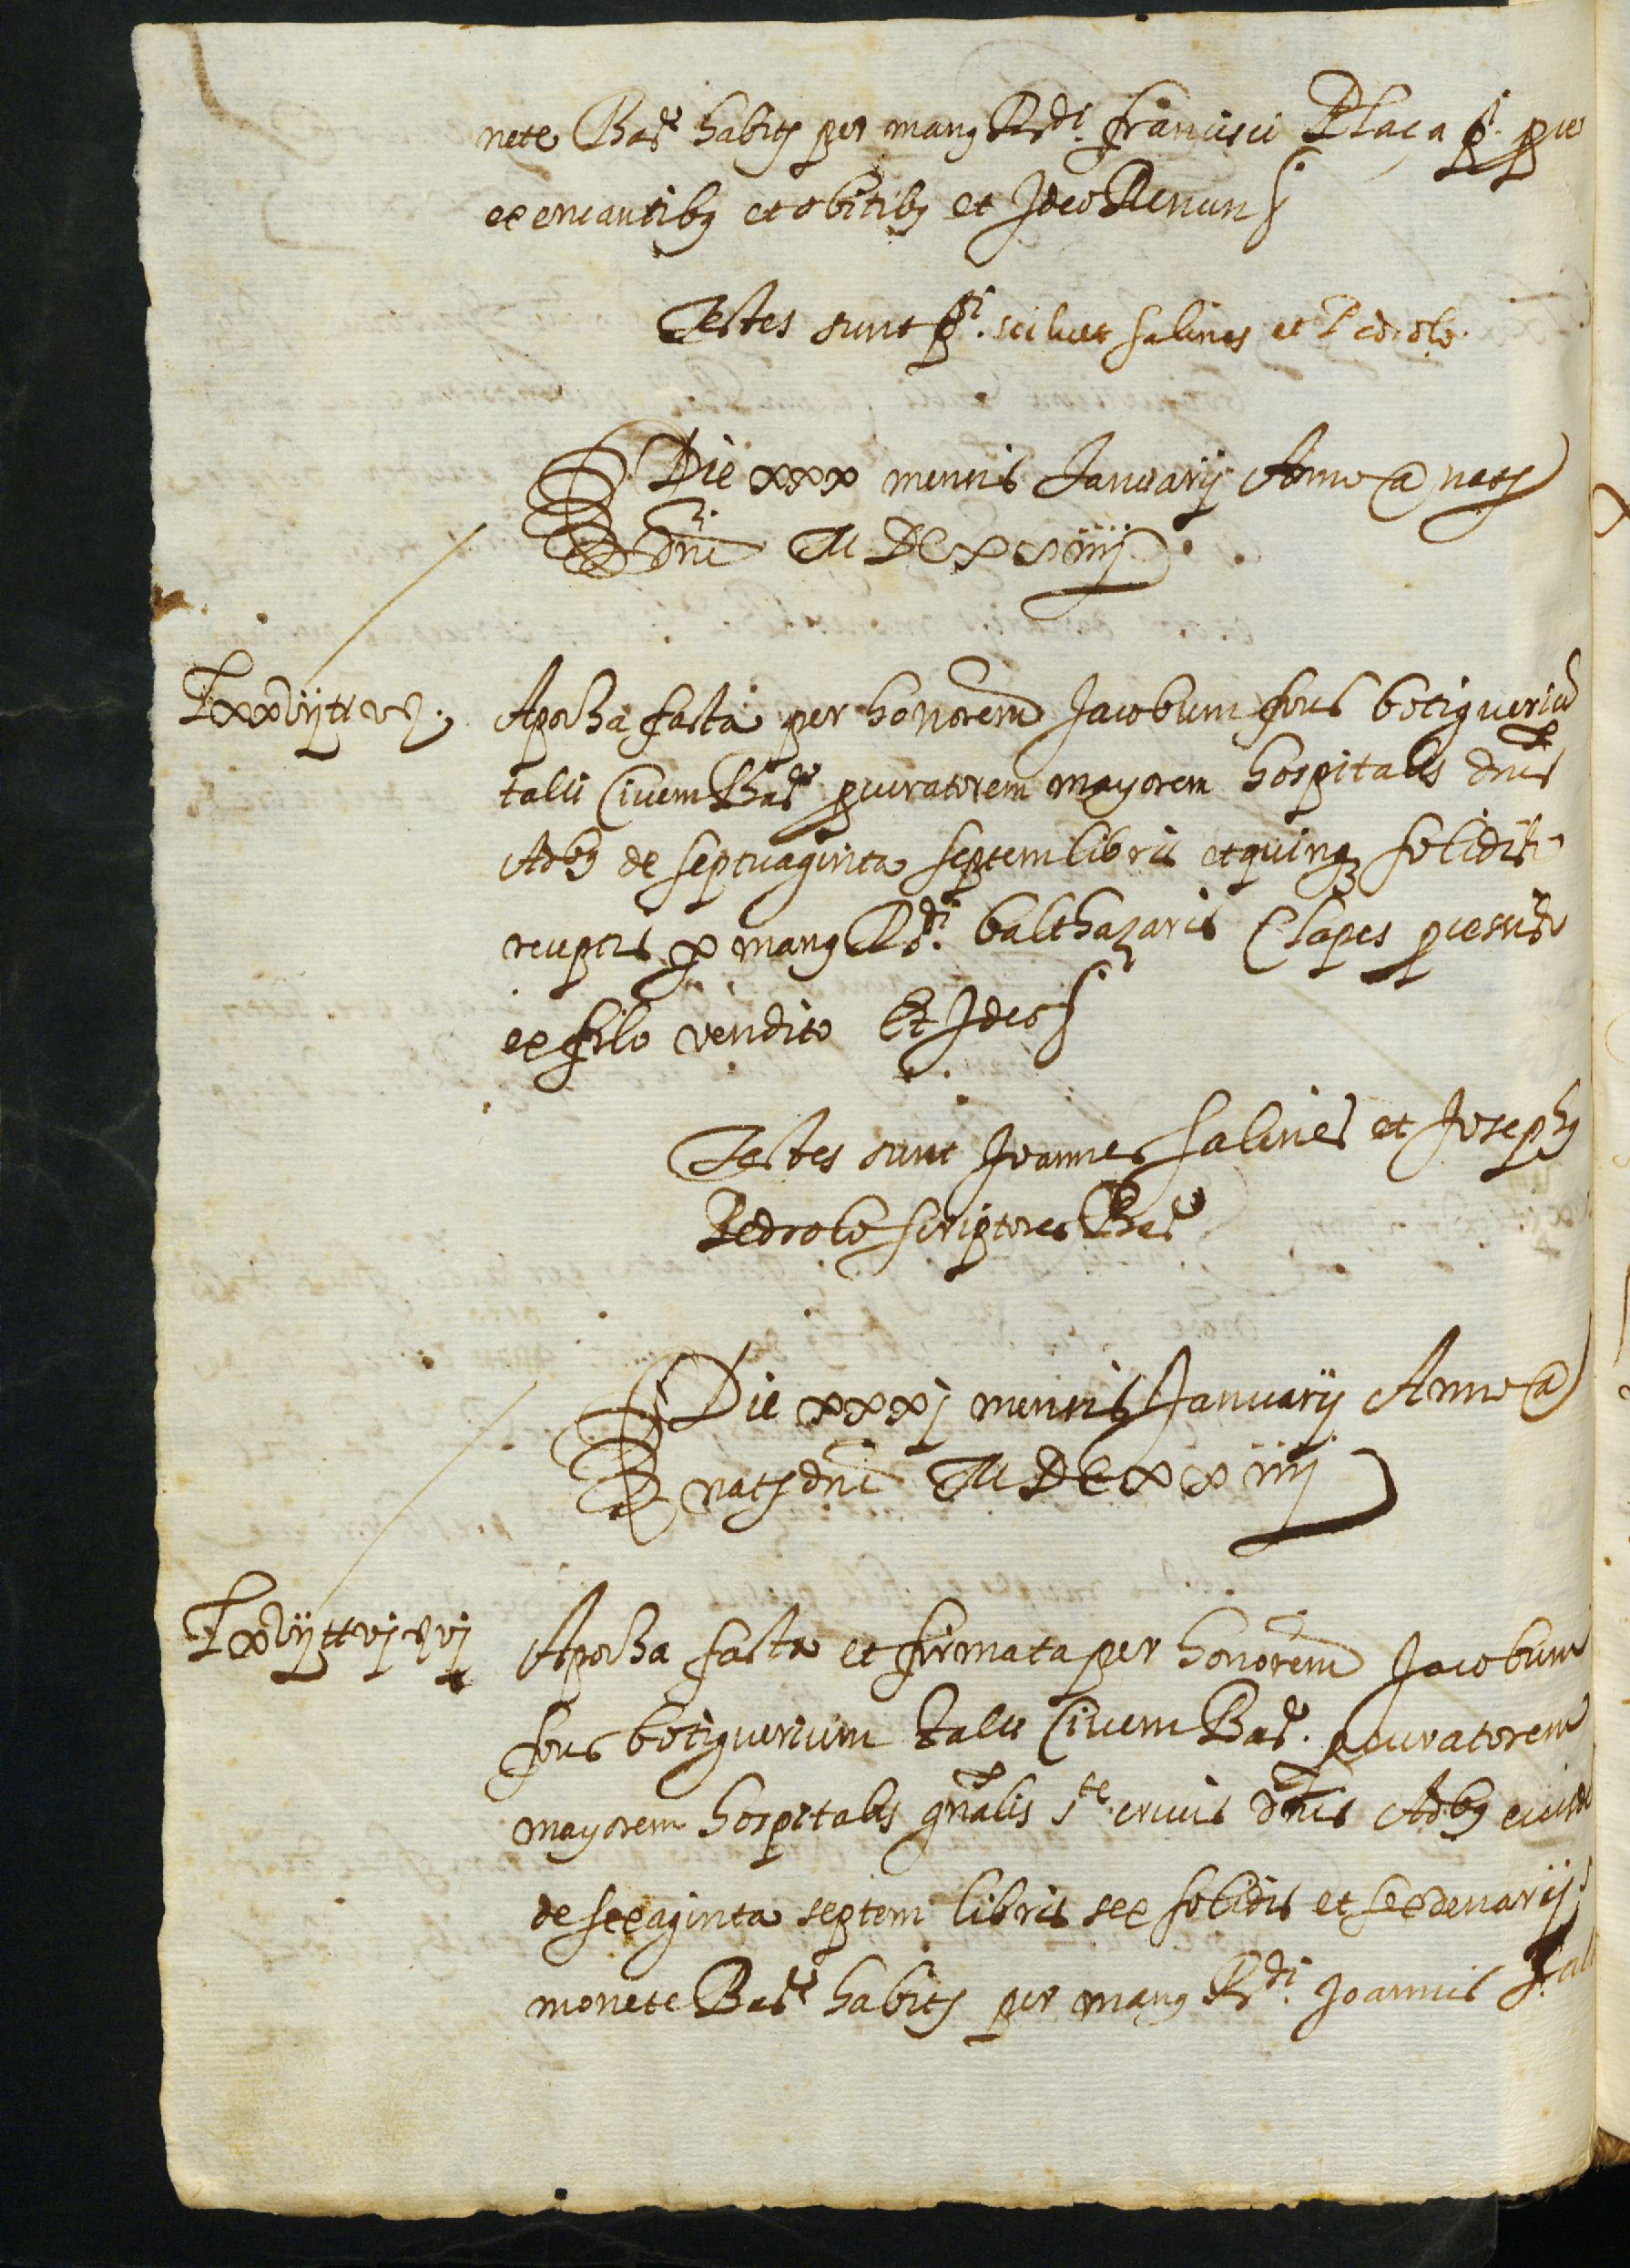 nete Bar̃e habitȷ per manꝯ Rdi. francisci Plaça pi. pre
ex encantibꝯ et obitibꝯ et Ideo Renunꝭ
Testes sunt pi. scilicet salines et Pedrolo
Die xxx mensis Januarij Anno a natȷ
dni MDCxxiiij
Lxxvij ℔ v ß.
Apocha facta per honorem Jacobum fous botigueriũ
talii Civem Bar̃e procuratorem mayorem hospitalis dncs
Adbꝯ de septuaginta septem libris et quinqꝫ solidis
receptis per manꝯ Rdi. balthazaris Clapes
ex filo vendito Et Ideo ꝭ
Testes sunt Joannes salines et Josephꝯ
Pedrolo scriptores Bar̃e
Die xxxj mensis Januarij Anno a
natȷ dni MDCxxiiij
Lxvij ℔ vj ß vj
Apocha facta et firmata per honorem Jacobum
fous botiguerium talii Civem Bar̃e. procuratorem
mayorem hospitalis gnalis ste. crucis dncs Adbꝯ eiusd
de sexaginta septem libris sex solidis et sex denarijs
monete Bar̃e habitȷ per manꝯ Rdi. Joannis